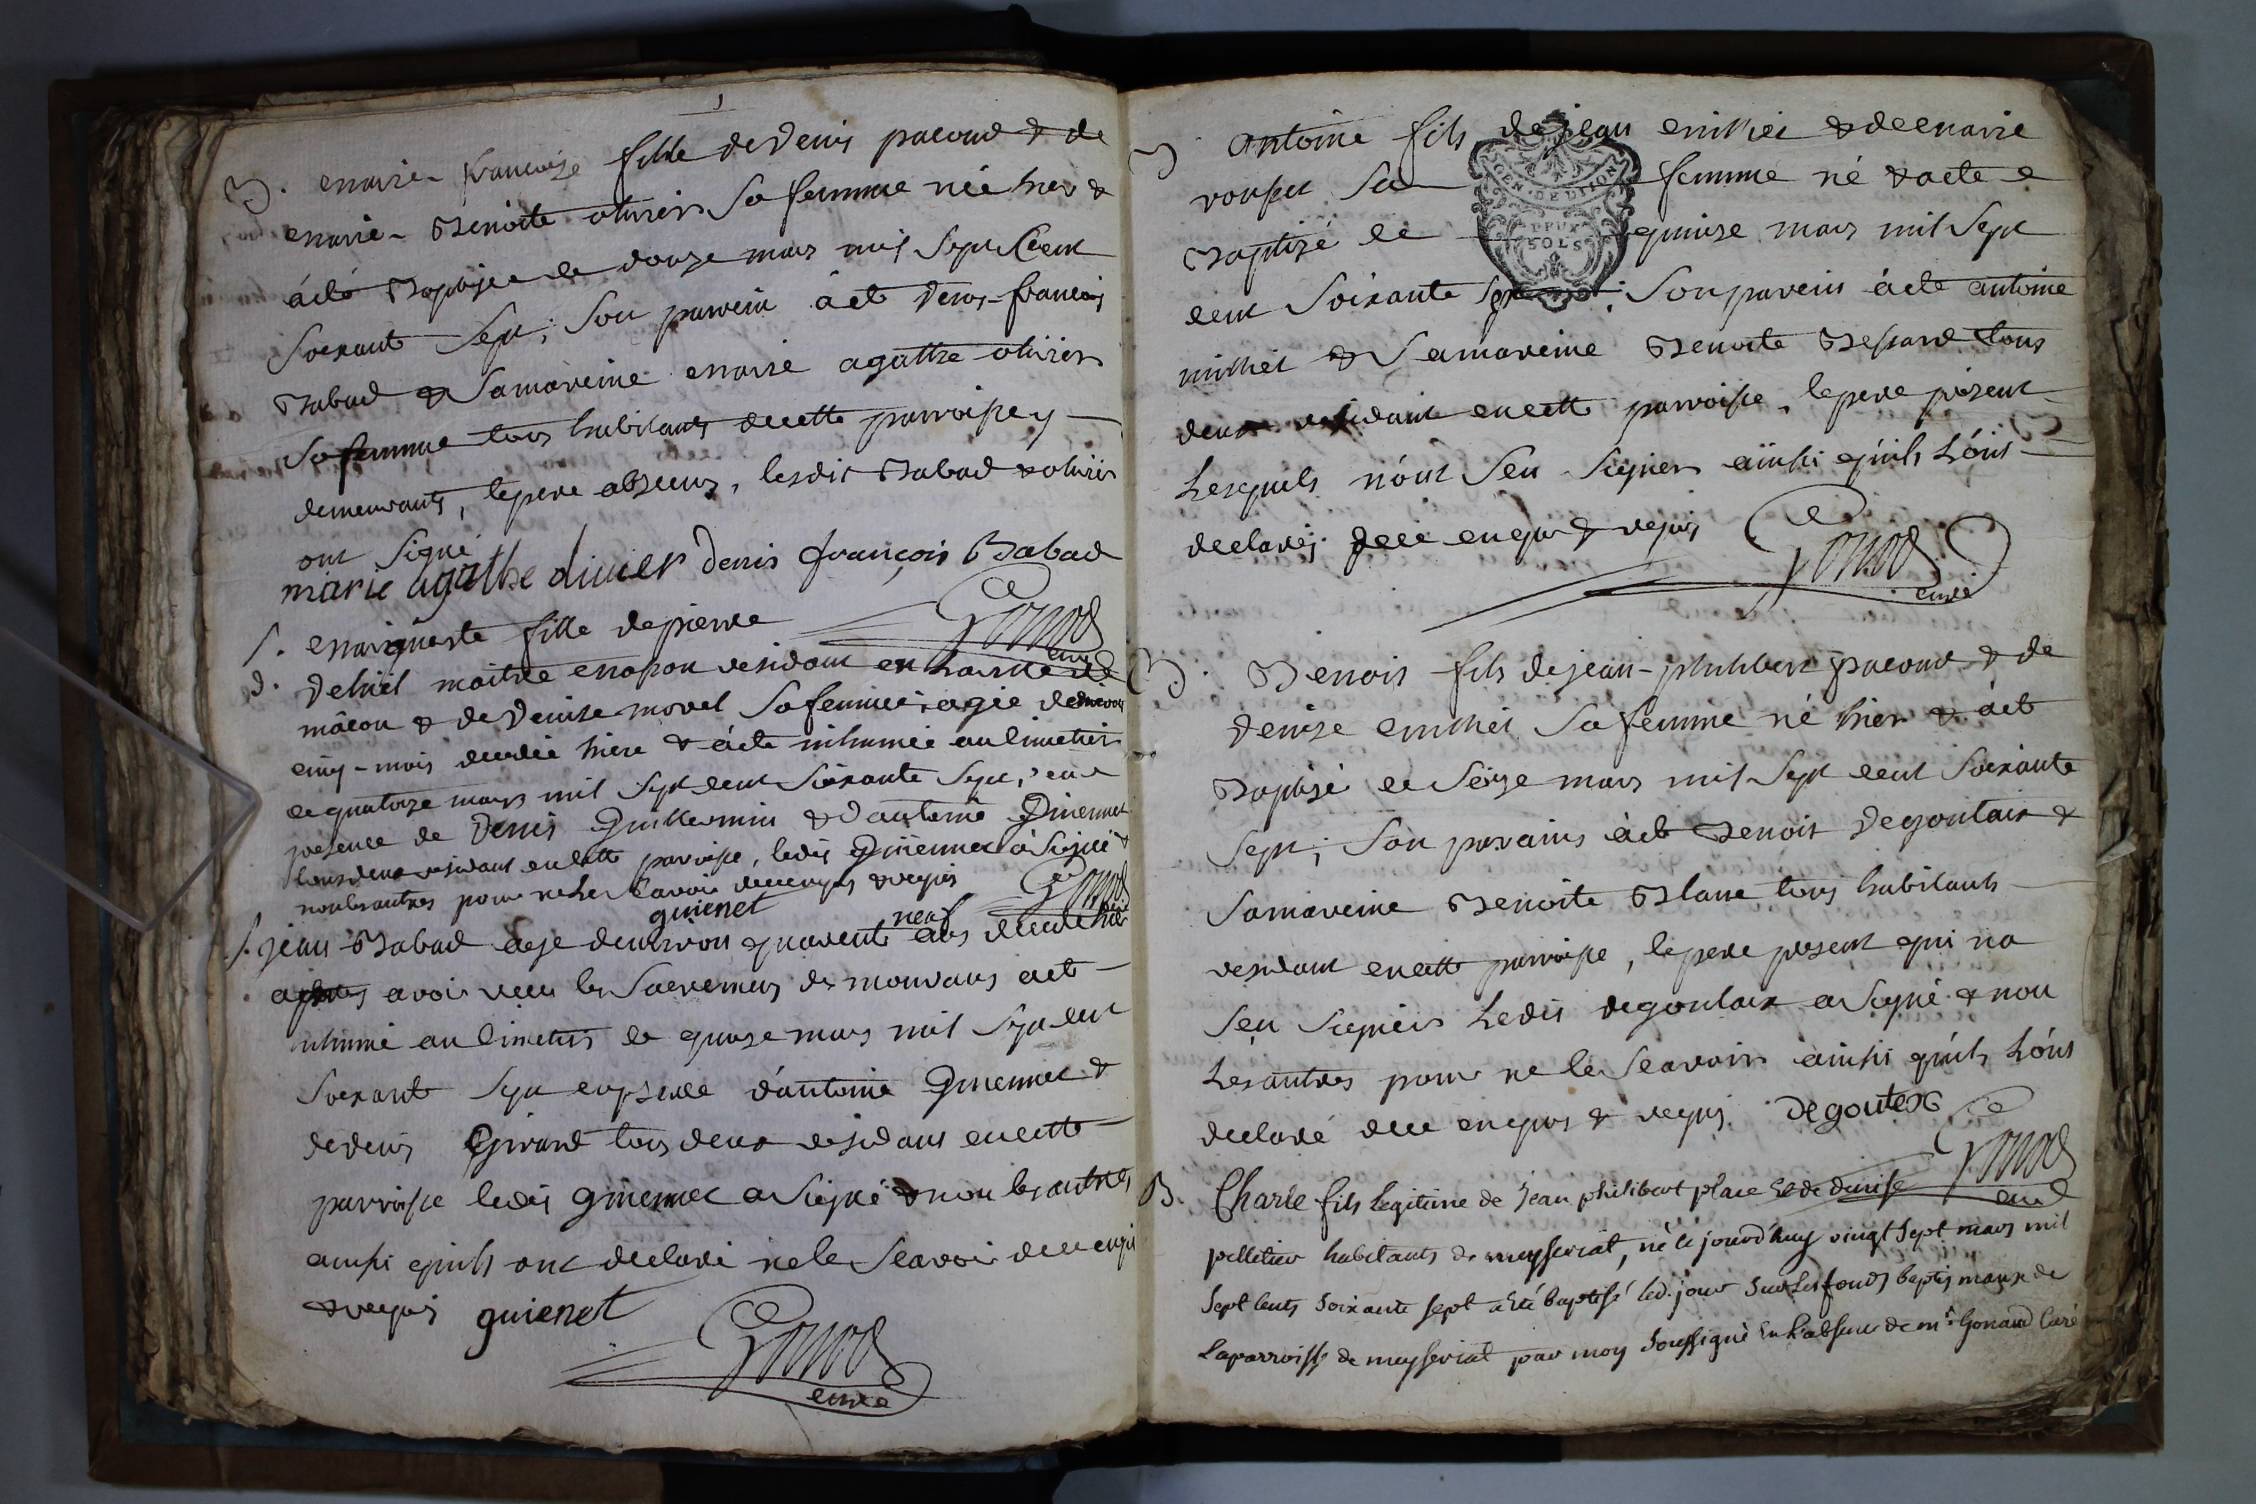 B. marie françoise fille de Denis pacoud & de
marie Benoite olivier sa femme née hier &
a été Baptisée le douze mars mil sept Cent
soixante sept; son parrein a eté Denis françois
Babad & sa mareine marie agathe olivier
sa femme tous habitants de cette parroisse y
demeurants, le pere absens, lesdit Babad & olivier
ont signé
marie agathe olivier Denis françois Babad
Gonod
curé
S. marguerite fille de pierre
d. maitre maçon residant en
mâcon & de Denise morel sa femme agée denviron
cinq mois decedée hiere & a été inhumée au cimetier
le quatorze mars mil sept cent soixante sept, en
presence de Denis Guillermin & d'antoine Guiennet
tous deux residant en cette parroisse, ledit Guiennet a signé &
non les autres pour ne le sçavoir de ce enquis & requis
guienet Gonod
neuf
S. jean Babad agé denviron quarente ans decedé hier
apres avoir reçu les sacremens des mourans a eté
inhumé au cimetier le quinze mars mil sept cent
soixante sept en psence d'antoine Guiennet &
de denis Girard tous deux residans en cette
parroisse ledit guiennet a signé & non les autres
ainsi quils ont declaré ne le sçavoir de ce enquis
& requis guienet
Gonod
curé
B antoine fils de jean millet & de marie
sa femme né & a eté
GEN. DE DIJON
DEUX
SOLS
Baptizé le quinze mars mil sept
cent soixante sept; son parein a eté antoine
millet & sa mareine Benoite tous
deux residant en cette parroisse, le pere present
lesquels n'ont sçu signer ainsi quils l'ons
declarés de ce enquis & requis Gonod
curé
B. Benoit fils de jean-philibert pacoud & de
denise millet sa femme né hier & a été
Baptisé le seize mars mil sept cent soixante
sept; son parains a été Benoit Degoutaix &
sa mareine Benoite Blanc tous habitants
residant en cette parroisse, le pere present qui na
sçu signer ledit degoutaix a signé & non
les autres pour ne le sçavoir ainsi quils l'ons
declaré de ce enquis & requis. Degoutex
Gonod
curé
B. Charle fils legitime de jean philibert place et de denise
pelletier habitants de meyseriat, né le jourd'huy vingt sept mars mil
sept cents soixante sept a été baptisé led. jour sur les fonds baptismaux de
la parroisse de meyseriat par moy soussigné en l'absence de mr. Gonaud Curé